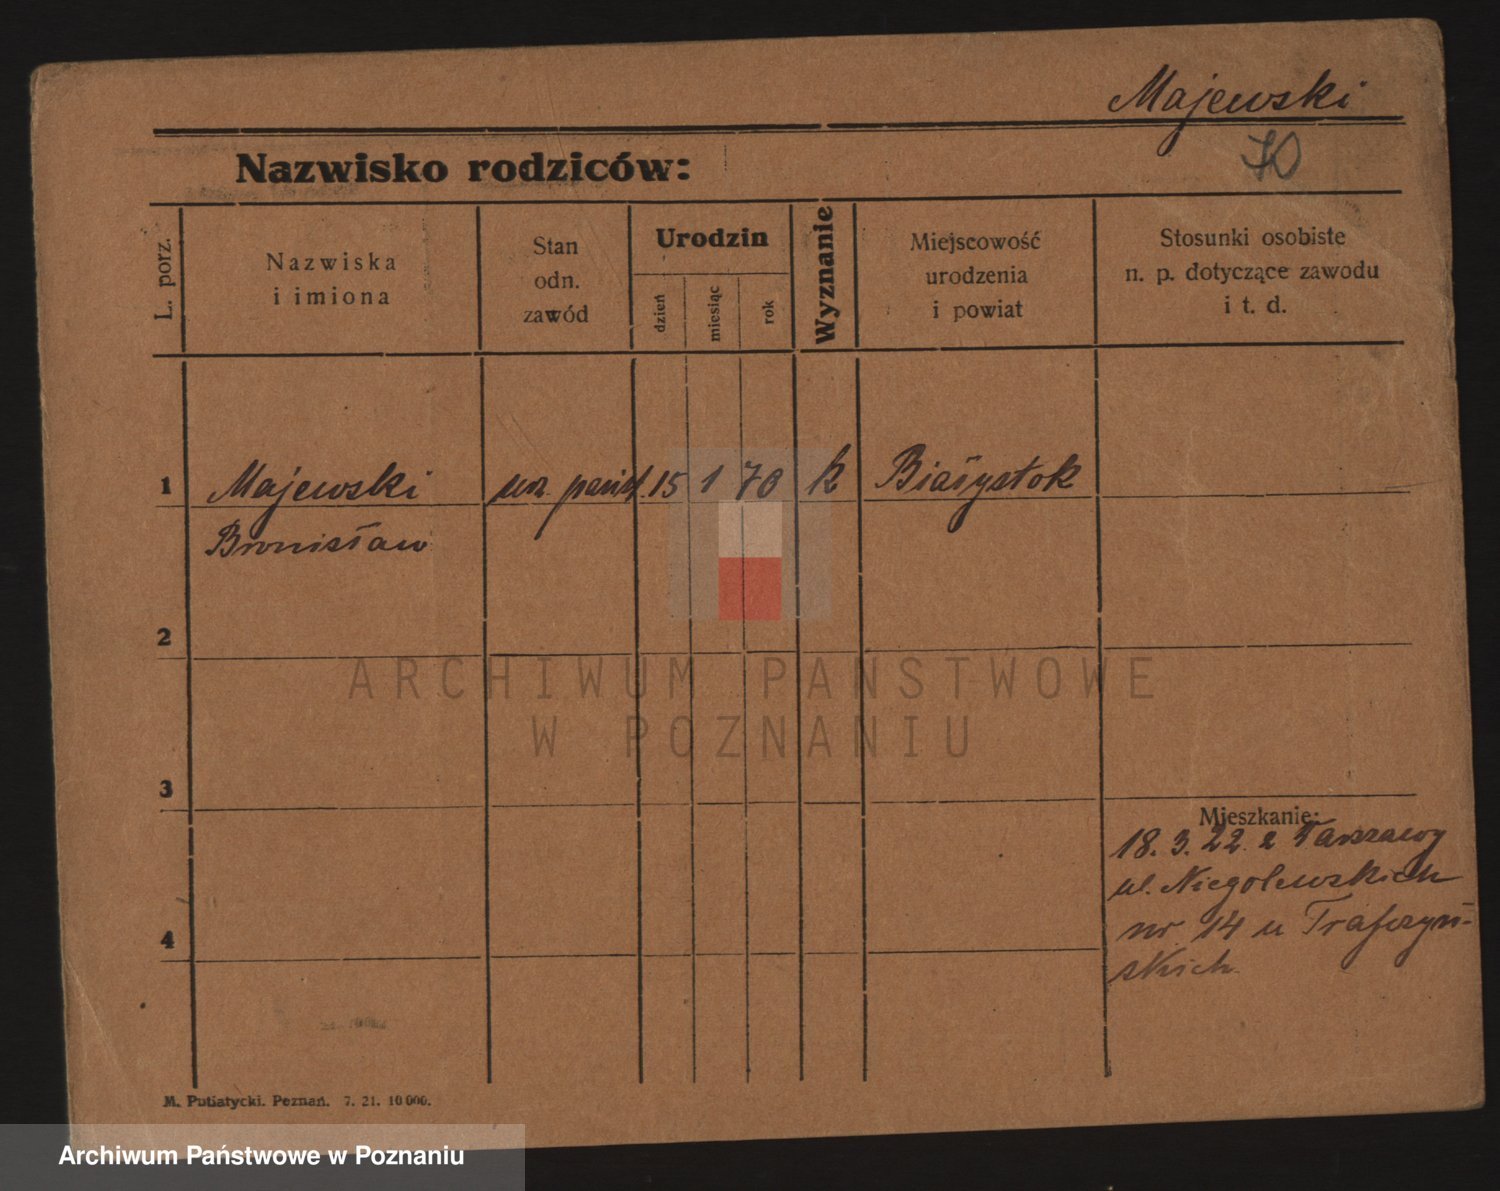 Majewski
70
Nazwisko rodziców:
L. porz.
Nazwiska
i imiona
Stan
odn.
zawód
Urodzin
dzień
miesiąc
rok
Wyznanie
Miejscowość
urodzenia
i powiat
Stosunki osobiste
n. p. dotyczące zawodu
i t. d.
1 Majewski 15 1 70 k Białystok
Bronisław
2
ARCHIWUM PAŃSTWOWE
W POZNANIU
3
Mieszkanie:
18. 3. 22. z Warszawy
ul. Niegolewskich
nr 14 u
skich
4
M. Putiatycki. Poznań. 7. 21. 10 000.
Archiwum Państwowe w Poznaniu